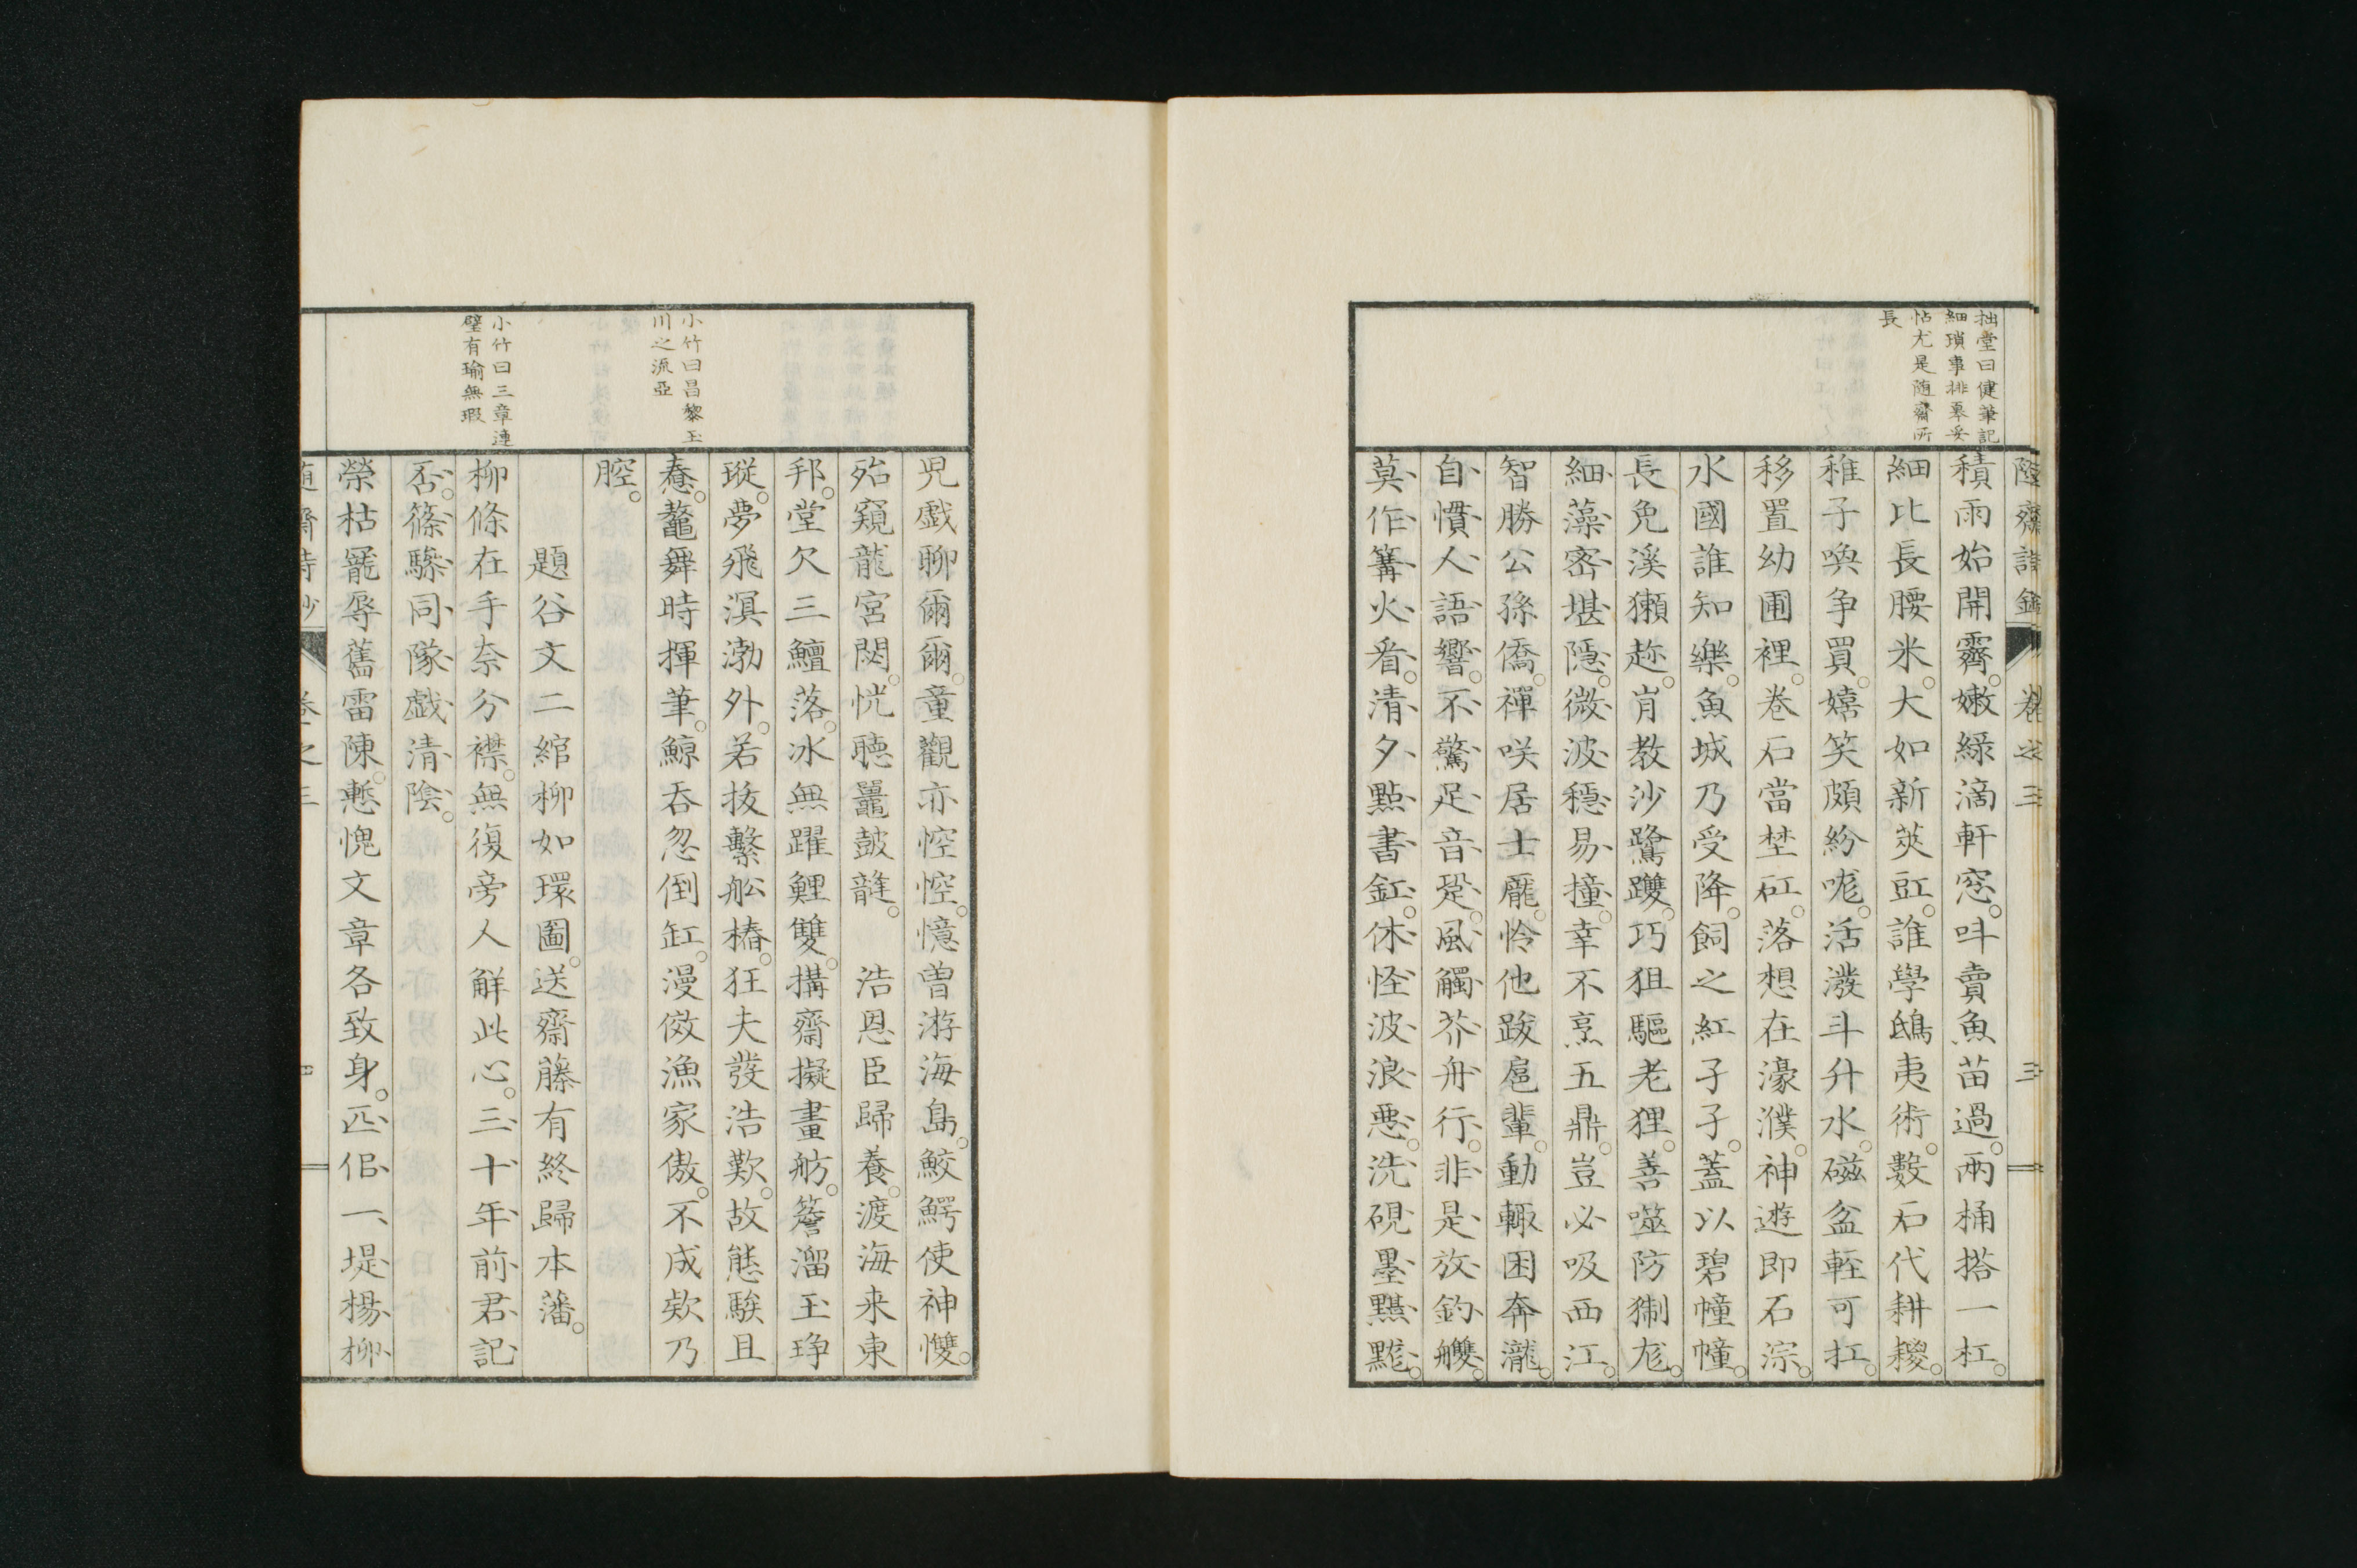 拙堂曰健筆記
細瑣事排奡妥
怗尤是随齋所
長
積雨始開霽嫩緑滴軒窓呌賣魚苗過兩桶搭一杠
細比長腰米大如新莢豇誰學鴟夷術數石代耕稯
稚子喚争買嬉笑頗紛哤活潑斗升水磁盆輕可扛
移置幼圃裡巻石當埜矼落想在濠濮神遊即石淙
水國誰知樂魚城乃受降飼之紅子孑蓋以碧幢幢
長免溪獺趂肯教沙鷺躩巧狙驅老狸善噬防猘尨
細藻密堪隱微波穏易撞幸不烹五鼎豈必吸西江
智勝公孫僑禪咲居士龐怜他跋扈輩動輙困奔瀧
自慣人語響不驚足音跫風觸芥舟行非是放釣艭
莫作篝火看清夕點書釭休怪波浪惡洗硯墨黮黮
随齋詩鈔 卷之三 三
小竹曰昌黎玉
川之流亞
小竹曰三章連
璧有瑜無瑕
児戯聊爾爾童觀亦悾悾憶曽游海島鮫鰐使神㦼
殆窺龍宮閟恍聴鼉鼓韼 浩恩臣歸養渡海来東
邦堂欠三鱣落冰無躍鯉雙搆齋擬畫舫簷溜玉琤
瑽夢飛溟渤外若抜繫舩樁狂夫發浩歎故態騃且
惷鼇舞時揮筆鯨吞忽倒缸漫傚漁家傲不成欸乃
腔
題谷文二綰柳如環圖送齋藤有終歸本藩
柳條在手奈分襟無復旁人解此心三十年前君記
否篠驂同隊戯清陰
榮枯寵辱舊雷陳慙愧文章各致身匹侶一堤楊柳
随齋詩鈔 卷之三